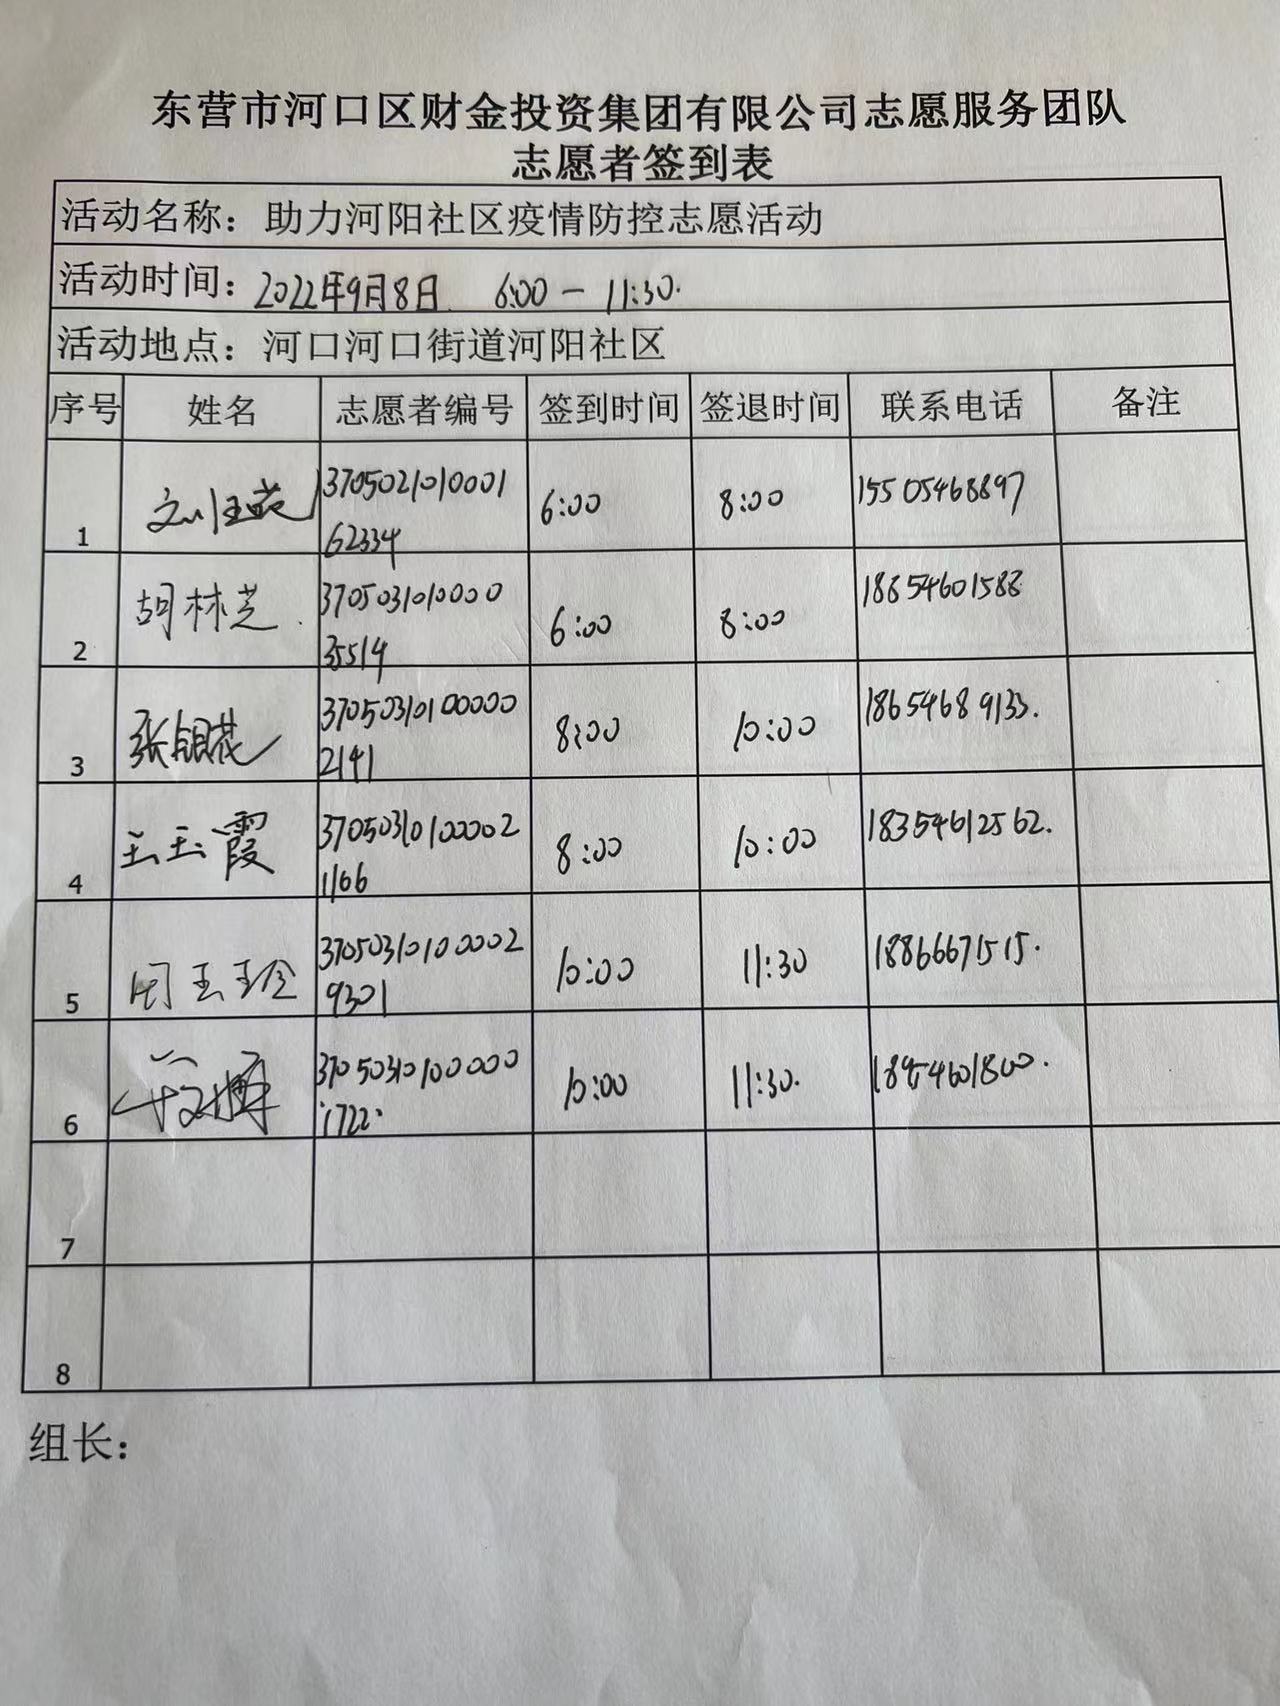 东营市河口区财金投资集团有限公司志愿服务团队
志愿者签到表
活动名称：助力河阳社区疫情防控志愿活动
活动时间：2022年9月8日 6:00 — 11:30.
活动地点：河口河口街道河阳社区
序号 姓名 志愿者编号 签到时间 签退时间 联系电话 备注
1 3705021010001 6:00 8:00 15505468897
62334
2 胡林芝 3705031010000 6:00 8:00 18854601588
35514
3 张银花 37050310100000 8:00 10:00 18654689133.
2141
4 王玉霞 37050310100002 8:00 10:00 18354612562.
1166
5 周玉玲 37050310100002 10:00 11:30 18866671515.
9301
6 37050310100000 10:00 11:30.
1722.
7
8
组长：